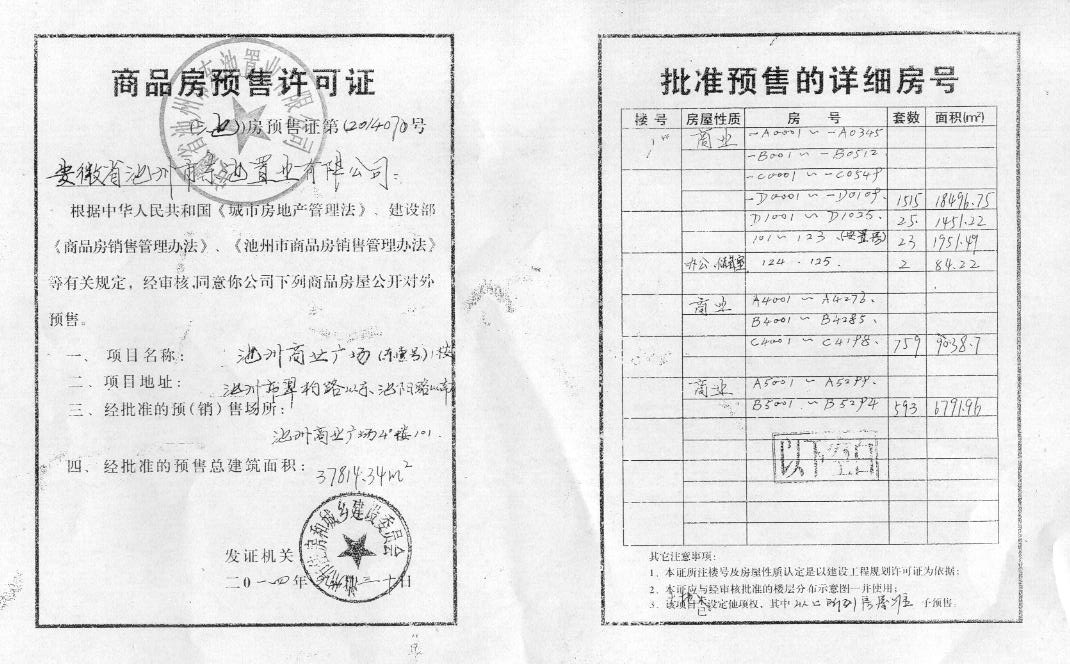 商品房预售许可证
(池)房预售证第(2014070号
安徽省池州市东池置业有限公司:
根据中华人民共和国《城市房地产管理法》、建设部
《商品房销售管理办法》、《池州市商品房销售管理办法》
等有关规定,经审核,同意你公司下列商品房屋公开对外
预售。
一、项目名称: 池州商业广场
二、项目地址: 池州市翠柏路以东、池阳路以
三、经批准的预(销)售场所:
池州商业广场4#楼101.
四、经批准的预售总建筑面积: 37814.34m²
住房和城乡建设委员会
发证机关
二0一四年
批准预售的详细房号
楼号 房屋性质 房号 套数 面积(m²)
1# 商业 -A0001~-A0345
-B001~-B0512.
-C0001~-C0549
-D0001~-D0109. 1515 18496.75
D1001~D1025. 25. 1451.22
101~123.(安置房) 23 1951.49
办公、 124.125. 2 84.22
商业 A4001~A4276.
B4001~B4285.
C4001~C4198. 759 9038.7
商业 A5001~A5299.
B5001.~B5294 593 6791.96
以下空白
其它注意事项:
1、本证所注楼号及房屋性质认定是以建设工程规划许可证为依据;
2、本证应与经审核批准的楼层分布示意图一并使用;
3、该项目已设定他项权,其中以上所列房屋准予预售。